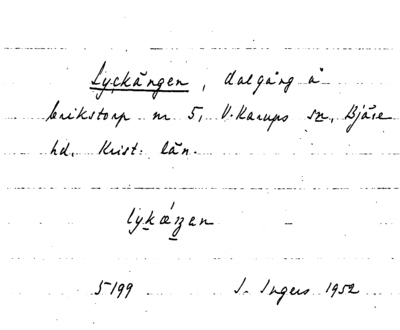 Lyckängen, dalgång å
Erikstorp nr 5, V. Karups sn, Bjäre
hd, Krist. län.
lykæŋen
5199 I. Ingers 1952